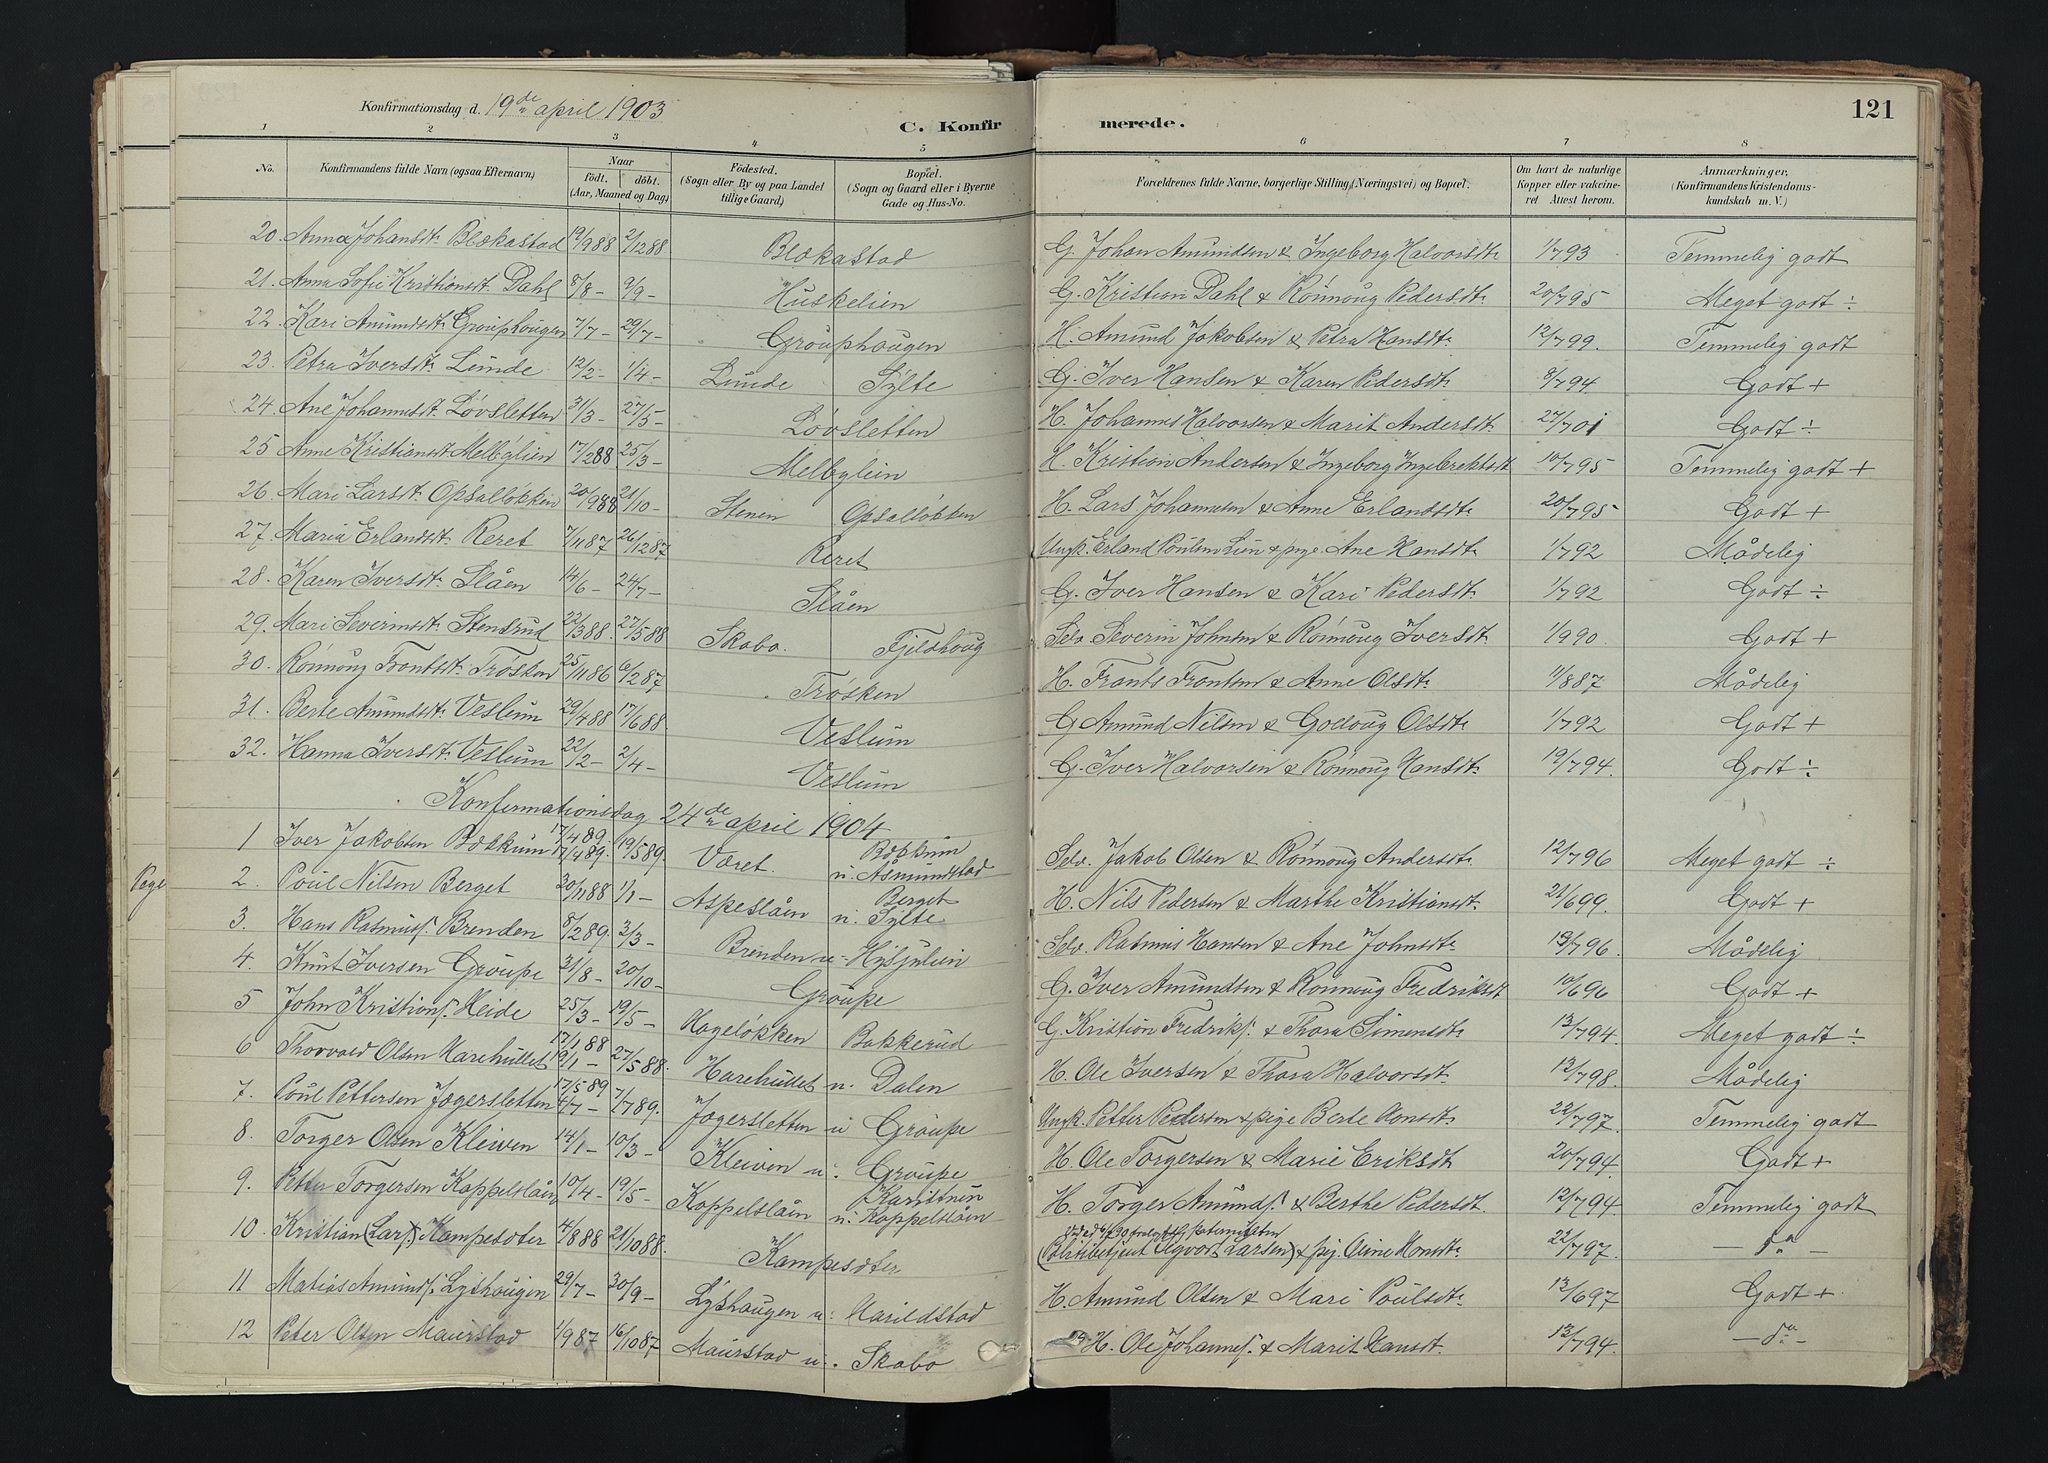 121
Konfirmationsdag d. 19de april 1903
C. Konfirmerede.
1 2 3 4 5 6 7 8
No. Konfirmandens fulde Navn (ogsaa Efternavn) Naar født. døbt. (Aar, Maaned og Dag) Födested. (Sogn eller By og paa Landet tillige Gaard) Bopæl. (Sogn og Gaard eller i Byerne Gade og Hus-No. Forældrenes fulde Navne, borgerlige Stilling (Næringsvei) og Bopæl. Om havt de naturlige Kopper eller vakcineret Attest herom. Anmærkninger, (Konfirmandens Kristendomskundskab m. V.)
20. Anna Johansdt. Blækastad 19/988 2/1288 Blækastad G. Johan Amundsen & Ingeborg Halvorsdt. 1/793 Temmelig godt
21. Anna Sofie Kristiansdt. Dahl 8/8 - 9/9 - Huskelien G. Kristian Dahl & Rønnoug Pedersdt. 20/795 Meget godt ÷
22. Kari Amundsdt. Grouphougen 7/7 - 29/7 - Grouphougen H. Amund Jakobsen & Petra Hansdt. 12/799. Temmelig godt
23. Petra Iversdt. Lunde 12/2 - 1/4 - Lunde Sylte G. Iver Hansen & Karen Pedersdt. 9/794. Godt +
24. Ane Johannesdt. Løvsletten 31/3 - 27/5 - Løvsletten H. Johannes Halvorsen & Marit Andersdt. 27/701 Godt ÷
25 Anne Kristiansdt. Melbylien 17/288 25/3 - Melbylien H. Kristian Andersen & Ingeborg Ingebrektsdt 10/795 Temmelig godt +
26. Mari Larsdt. Opsalløkken 20/988 21/10 - Stenen Opsalløkken H. Lars Johannesen & Anne Erlandsdt. 20/795 Godt +
27. Maria Erlandsdt. Reret 7/1187 26/1287 Reret Ungk. Erland Poulsen Lien & pige. Ane Hansdt. 1/792 Mådelig
28. Karen Iversdt. Slåen 14/6 - 24/7 - Slåen G. Iver Hansen & Kari Pedersdt. 1/792 Godt ÷
29. Mari Severinsdt. Stensrud 22/388. 27/588 Skabo. Fjeldhoug Selv. Severin Johnsen & Rønnoug Iversdt. 1/990. Godt +
30. Rønnoug Frantsdt. Trøsken 25/1186 6/287 Trøsken H. Frants Frantsen & Anne Olsdt. 11/887 Mådelig
31. Berte Amundsdt. Veslum 29/488 17/688. Veslum G. Amund Nilsen & Gollaug Olsdt. 1/792 Godt +
32. Hanna Iversdt. Veslum 22/2 - 2/4 - Veslum G. Iver Halvorsen & Rønnoug Hansdt. 19/794. Godt ÷
Konfirmationsdag 24de april 1904
1 Iver Jakobsen Bækkum 17/489 17/489. 19/589. Været. Bækkum u. Åsmundstad Selv. Jakob Olsen & Rønnoug Andersdt. 12/796 Meget godt ÷
2. Poul Nilsen Berget 30/1188 1/1 - Aspeslåen Berget u. Sylte H. Nils Pedersen & Marthe Kristiansdt. 21/699. Godt +
3. Hans Rasmuss. Brenden 8/289. 3/3 - Brenden u - Hysjulien Selv. Rasmus Hansen & Ane Johnsdt. 13/796. Mådelig
4. Knut Iversen Groupe 31/8 - 20/10 - Groupe G. Iver Amundsen & Rønnoug Fredriksdt 10/696 Godt +
5 John Kristians. Heide 25/3 - 19/5 - Hageløkken Bakkerud G. Kristian Fredriks. & Thora Simensdt. 13/794. Meget godt ÷
6 Thorvald Olsen Harehullet 17/188 19/1 - 27/588. Harehullet u. Dalen H. Ole Iversen & Thora Halvorsdt. 12/798. Mådelig
7. Poul Pettersen Jægersletten 17/589 4/7 - 7/789. Jægersletten u Groupe Ungk. Petter Pedersen & pige Berte Hansdt. 22/797. Temmelig godt
8. Torger Olsen Kleiven 14/1 - 10/3 - Kleiven u. Groupe H. Ole Torgersen & Marie Eriksdt. 20/794. Godt +
9. Petter Torgersen Koppelslåen 10/4 - 19/5 - Koppelslåen u. Koppelslåen H. Torger Amunds. & Berthe Pedersdt. 12/794. Temmelig godt
10. Kristian (Lars.) Kampesæter 4/888 21/1088. Kampesæter Larsen) & pig. Oline Hansdt. 22/797. - da -
11 Matias Amunds. Lyshaugen 29/7 - 30/9 - Lyshaugen u. Harildstad H. Amund Olsen & Mari Poulsdt. 13/697 Godt +
12 Peter Olsen Maurstad 1/987 16/1087 Maurstad u. Skabo H. Ole Johannes. & Marit Hansdt. 13/794. - da -